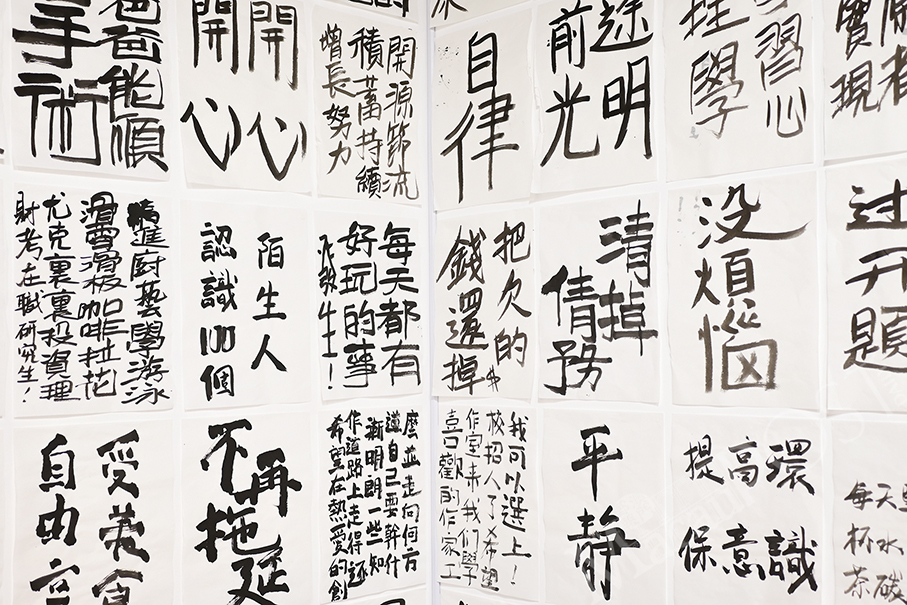 爸爸能順
手術
開心
開心
開源節流
積蓄持續
增長努力
自律
前途
光明
習
學心
實現
精進廚藝學游泳
滑雪滑板咖啡拉花
尤克裏裏投資理
財考在職研究生！
陌生人
認識100個
每天都有
好玩的事
發生！
把欠的
錢還掉
清掉
倩務
没煩惱
过开題
自由
不再
拖延
希望在熱愛的創
作道路上走得逐
漸明朗一些知
道自己要幹什
麼並走向何方
喜歡的作家工
作室来我们學
校招人了希望
我可以選上！
平静
提高環
保意識
每天
杯水
茶碳